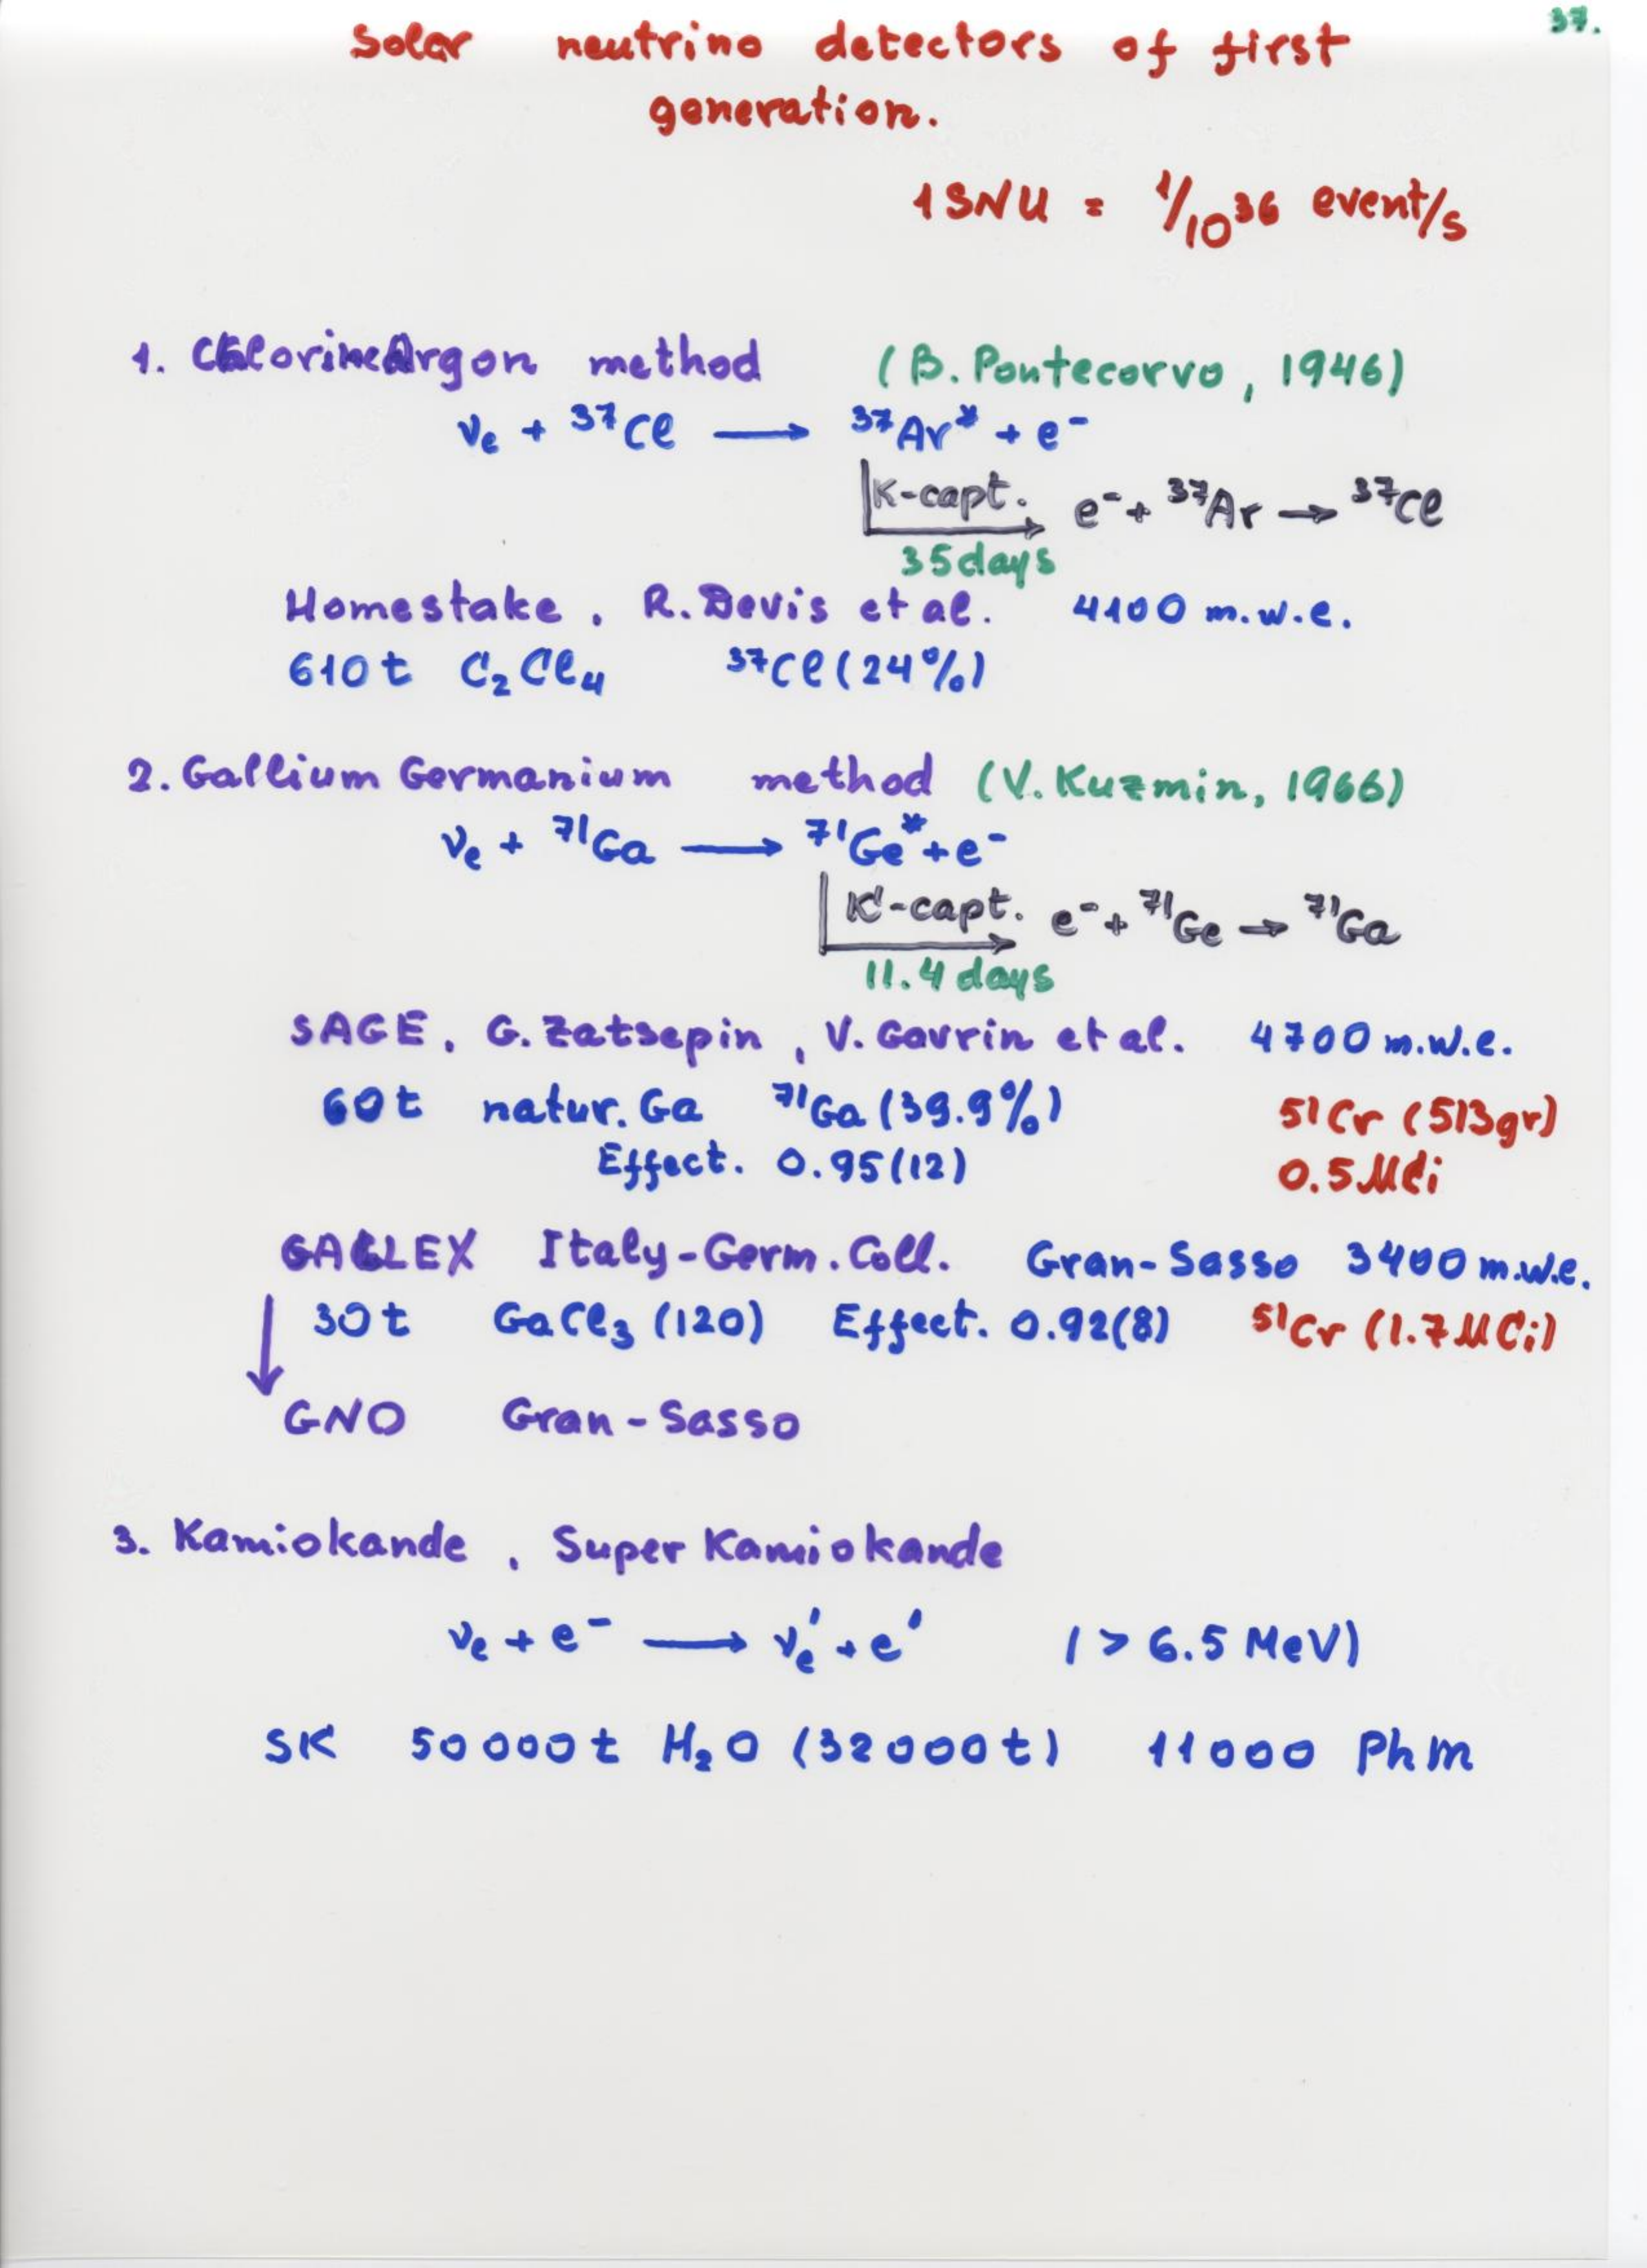 37.
Solar neutrino detectors of first
generation.
1 SNU = 1/10³⁶ event/s
1. ChlorineArgon method (B. Pontecorvo, 1946)
νe + ³⁷Cl ⟶ ³⁷Ar* + e⁻
K-capt. e⁻ + ³⁷Ar → ³⁷Cl
35 days
Homestake, R. Devis et al. 4100 m.w.e.
610 t C₂Cl₄ ³⁷Cl (24%)
2. Gallium Germanium method (V. Kuzmin, 1966)
νe + ⁷¹Ga ⟶ ⁷¹Ge* + e⁻
K-capt. e⁻ + ⁷¹Ge → ⁷¹Ga
11.4 days
SAGE, G. Zatsepin, V. Gavrin et al. 4700 m.w.e.
60 t natur. Ga ⁷¹Ga (39.9%) ⁵¹Cr (513gr)
Effect. 0.95(12) 0.5 MCi
GALLEX Italy-Germ. Coll. Gran-Sasso 3400 m.w.e.
30 t GaCl₃ (120) Effect. 0.92(8) ⁵¹Cr (1.7 MCi)
GNO Gran-Sasso
3. Kamiokande, Super Kamiokande
νe + e⁻ ⟶ νe' + e' (> 6.5 MeV)
SK 50000 t H₂O (32000 t) 11000 PhM